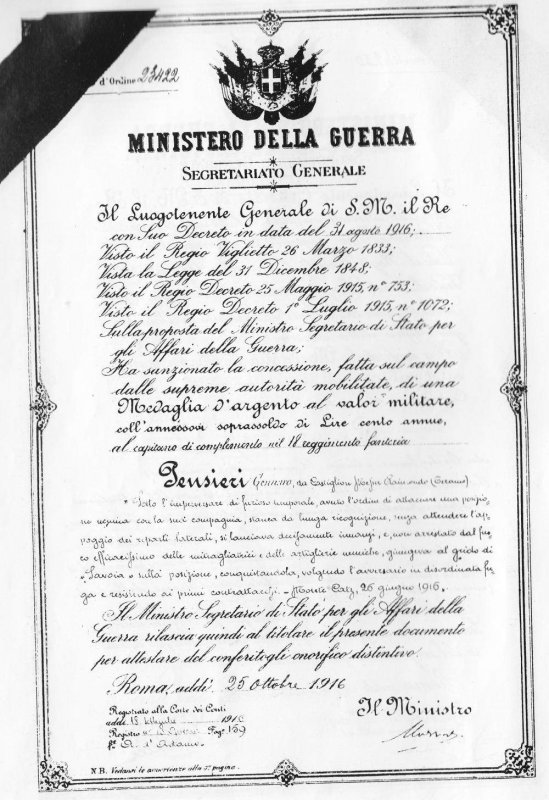 d'Ordine 23422
MINISTERO DELLA GUERRA
SEGRETARIATO GENERALE
Il Luogotenente Generale di S.M. il Re
con Suo Decreto in data del 31 agosto 1916;
Visto il Regio Viglietto 26 Marzo 1833;
Vista la Legge del 31 Dicembre 1848;
Visto il Regio Decreto 25 Maggio 1915, n° 753;
Visto il Regio Decreto 1° Luglio 1915, n° 1072;
Sulla proposta del Ministro Segretario di Stato per
gli Affari della Guerra;
Ha sanzionato la concessione, fatta sul campo
dalle supreme autorità mobilitate, di una
Medaglia d'argento al valor militare,
coll'annessovi soprassoldo di Lire cento annue,
al capitano di complemento nel 18 reggimento fanteria
Pensieri Gennaro, da Castiglione Messer Raimondo (Teramo)
Sotto l'imperversare di furioso temporale, avuto l'ordine di attaccare una posizio-
ne nemica con la sua compagnia, stanca da lunga ricognizione, senza attendere l'ap-
poggio dei reparti laterali, si lanciava decisamente innanzi, e, non arrestato dal fuo-
co efficacissimo delle mitragliatrici e delle artiglierie nemiche, giungeva al grido di
"Savoia" sulla posizione, conquistandola, volgendo l'avversario in disordinata fu-
ga e resistendo ai primi contrattacchi. - Monte 26 giugno 1916.
Il Ministro Segretario di Stato per gli Affari della
Guerra rilascia quindi al titolare il presente documento
per attestare del conferitogli onorifico distintivo.
Roma, addì 25 Ottobre 1916
Registrato alla Corte dei Conti
addì 18 1916
Registro Guerra Fog. 139
Fº D'Adamo
Il Ministro
N.B. Vedansi le avvertenze alla 3ª pagina.